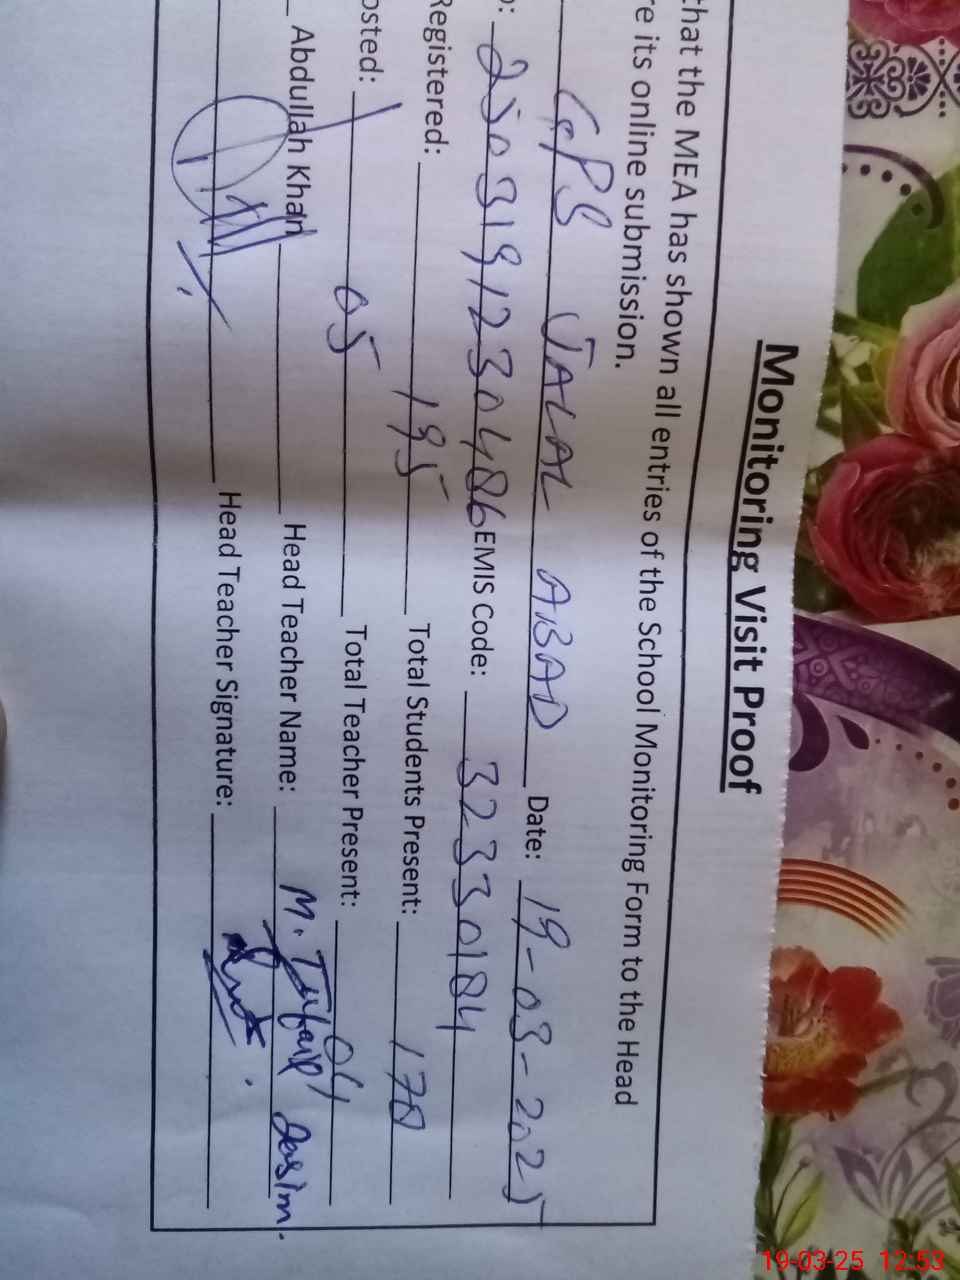 Monitoring Visit Proof
that the MEA has shown all entries of the School Monitoring Form to the Head
re its online submission.
GPS JALAL ABAD Date: 19-03-2025
: 2503191230486 EMIS Code: 32330184
Registered: 195 Total Students Present: 170
osted: 05 Total Teacher Present: 04
Abdullah Khan Head Teacher Name: M. Tufail
Head Teacher Signature:
19-03-25 12:53